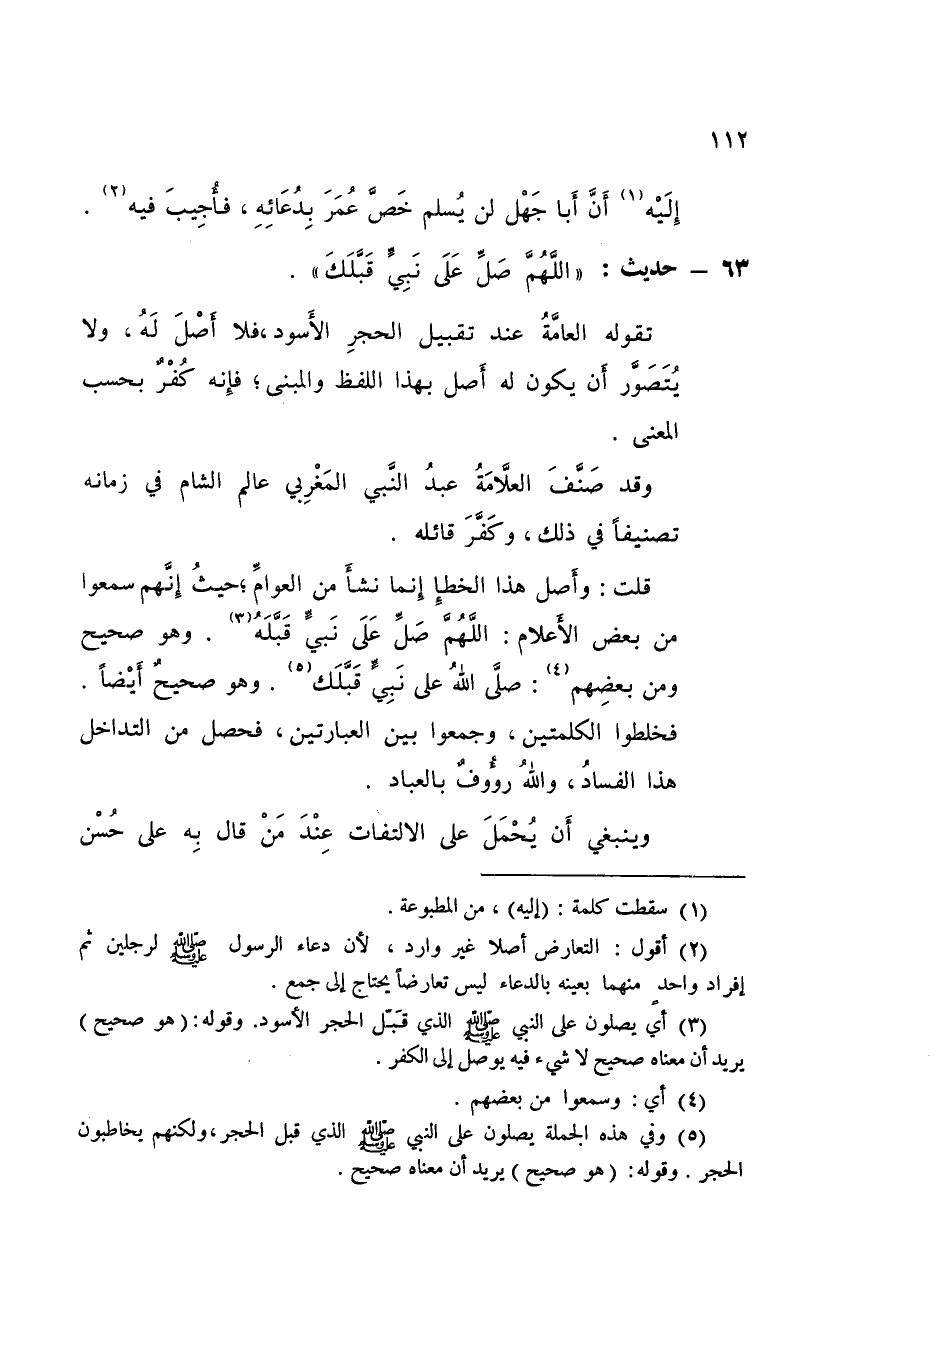 ١١٢
إِلَيْه(١) أَنَّ أَبا جَهْل لن يُسلم خَصَّ عُمَرَ بِدُعَائِهِ ، فأُجِيبَ فيه(٢) .
٦٣ – حديث : « اللَّهُمَّ صَلِّ عَلَى نَبِيٍّ قَبَّلَكَ» .
تقوله العامَّةُ عند تقبيل الحجرِ الأَسود،فلا أَصْلَ لَهُ ، ولا
يُتَصَوَّر أَن يكون له أَصل بهذا اللفظ والمبنى ؛ فإنه كُفْرٌ بحسب
المعنى .
وقد صَنَّفَ العلَّامَةُ عبدُ النَّبي المَغْرِبي عالم الشام في زمانه
تصنيفاً في ذلك ، وكَفَّرَ قائله .
قلت : وأَصل هذا الخطإِ إنما نشأَ من العوامِّ ؛حيثُ إنَّهم سمعوا
من بعض الأَعلام : اللَّهُمَّ صَلِّ عَلَى نَبيٍّ قَبَّلَهُ(٣) . وهو صحيح
ومن بعضِهم(٤) : صلَّى اللهُ على نَبِيٍّ قَبَّلَك(٥) . وهو صحيحٌ أَيْضاً .
فخلطوا الكلمتين ، وجمعوا بين العبارتين ، فحصل من التداخل
هذا الفسادُ ، واللهُ رؤُوفٌ بالعباد .
وينبغي أَن يُحْمَلَ على الالتفات عِنْدَ مَنْ قال بِه على حُسْن
(١) سقطت كلمة : (إليه) ، من المطبوعة .
(٢) أقول : التعارض أصلا غير وارد ، لأن دعاء الرسول ﷺ لرجلين ثم
إفراد واحدٍ منهما بعينه بالدعاء ليس تعارضاً يحتاج إلى جمع .
(٣) أي يصلون على النبي ﷺ الذي قَبّل الحجر الأسود. وقوله: ( هو صحيح )
يريد أن معناه صحيح لا شيء فيه يوصل إلى الكفر .
(٤) أي : وسمعوا من بعضهم .
(٥) وفي هذه الجملة يصلون على النبي ﷺ الذي قبل الحجر ،ولكنهم يخاطبون
الحجر . وقوله: ( هو صحيح ) يريد أن معناه صحيح .